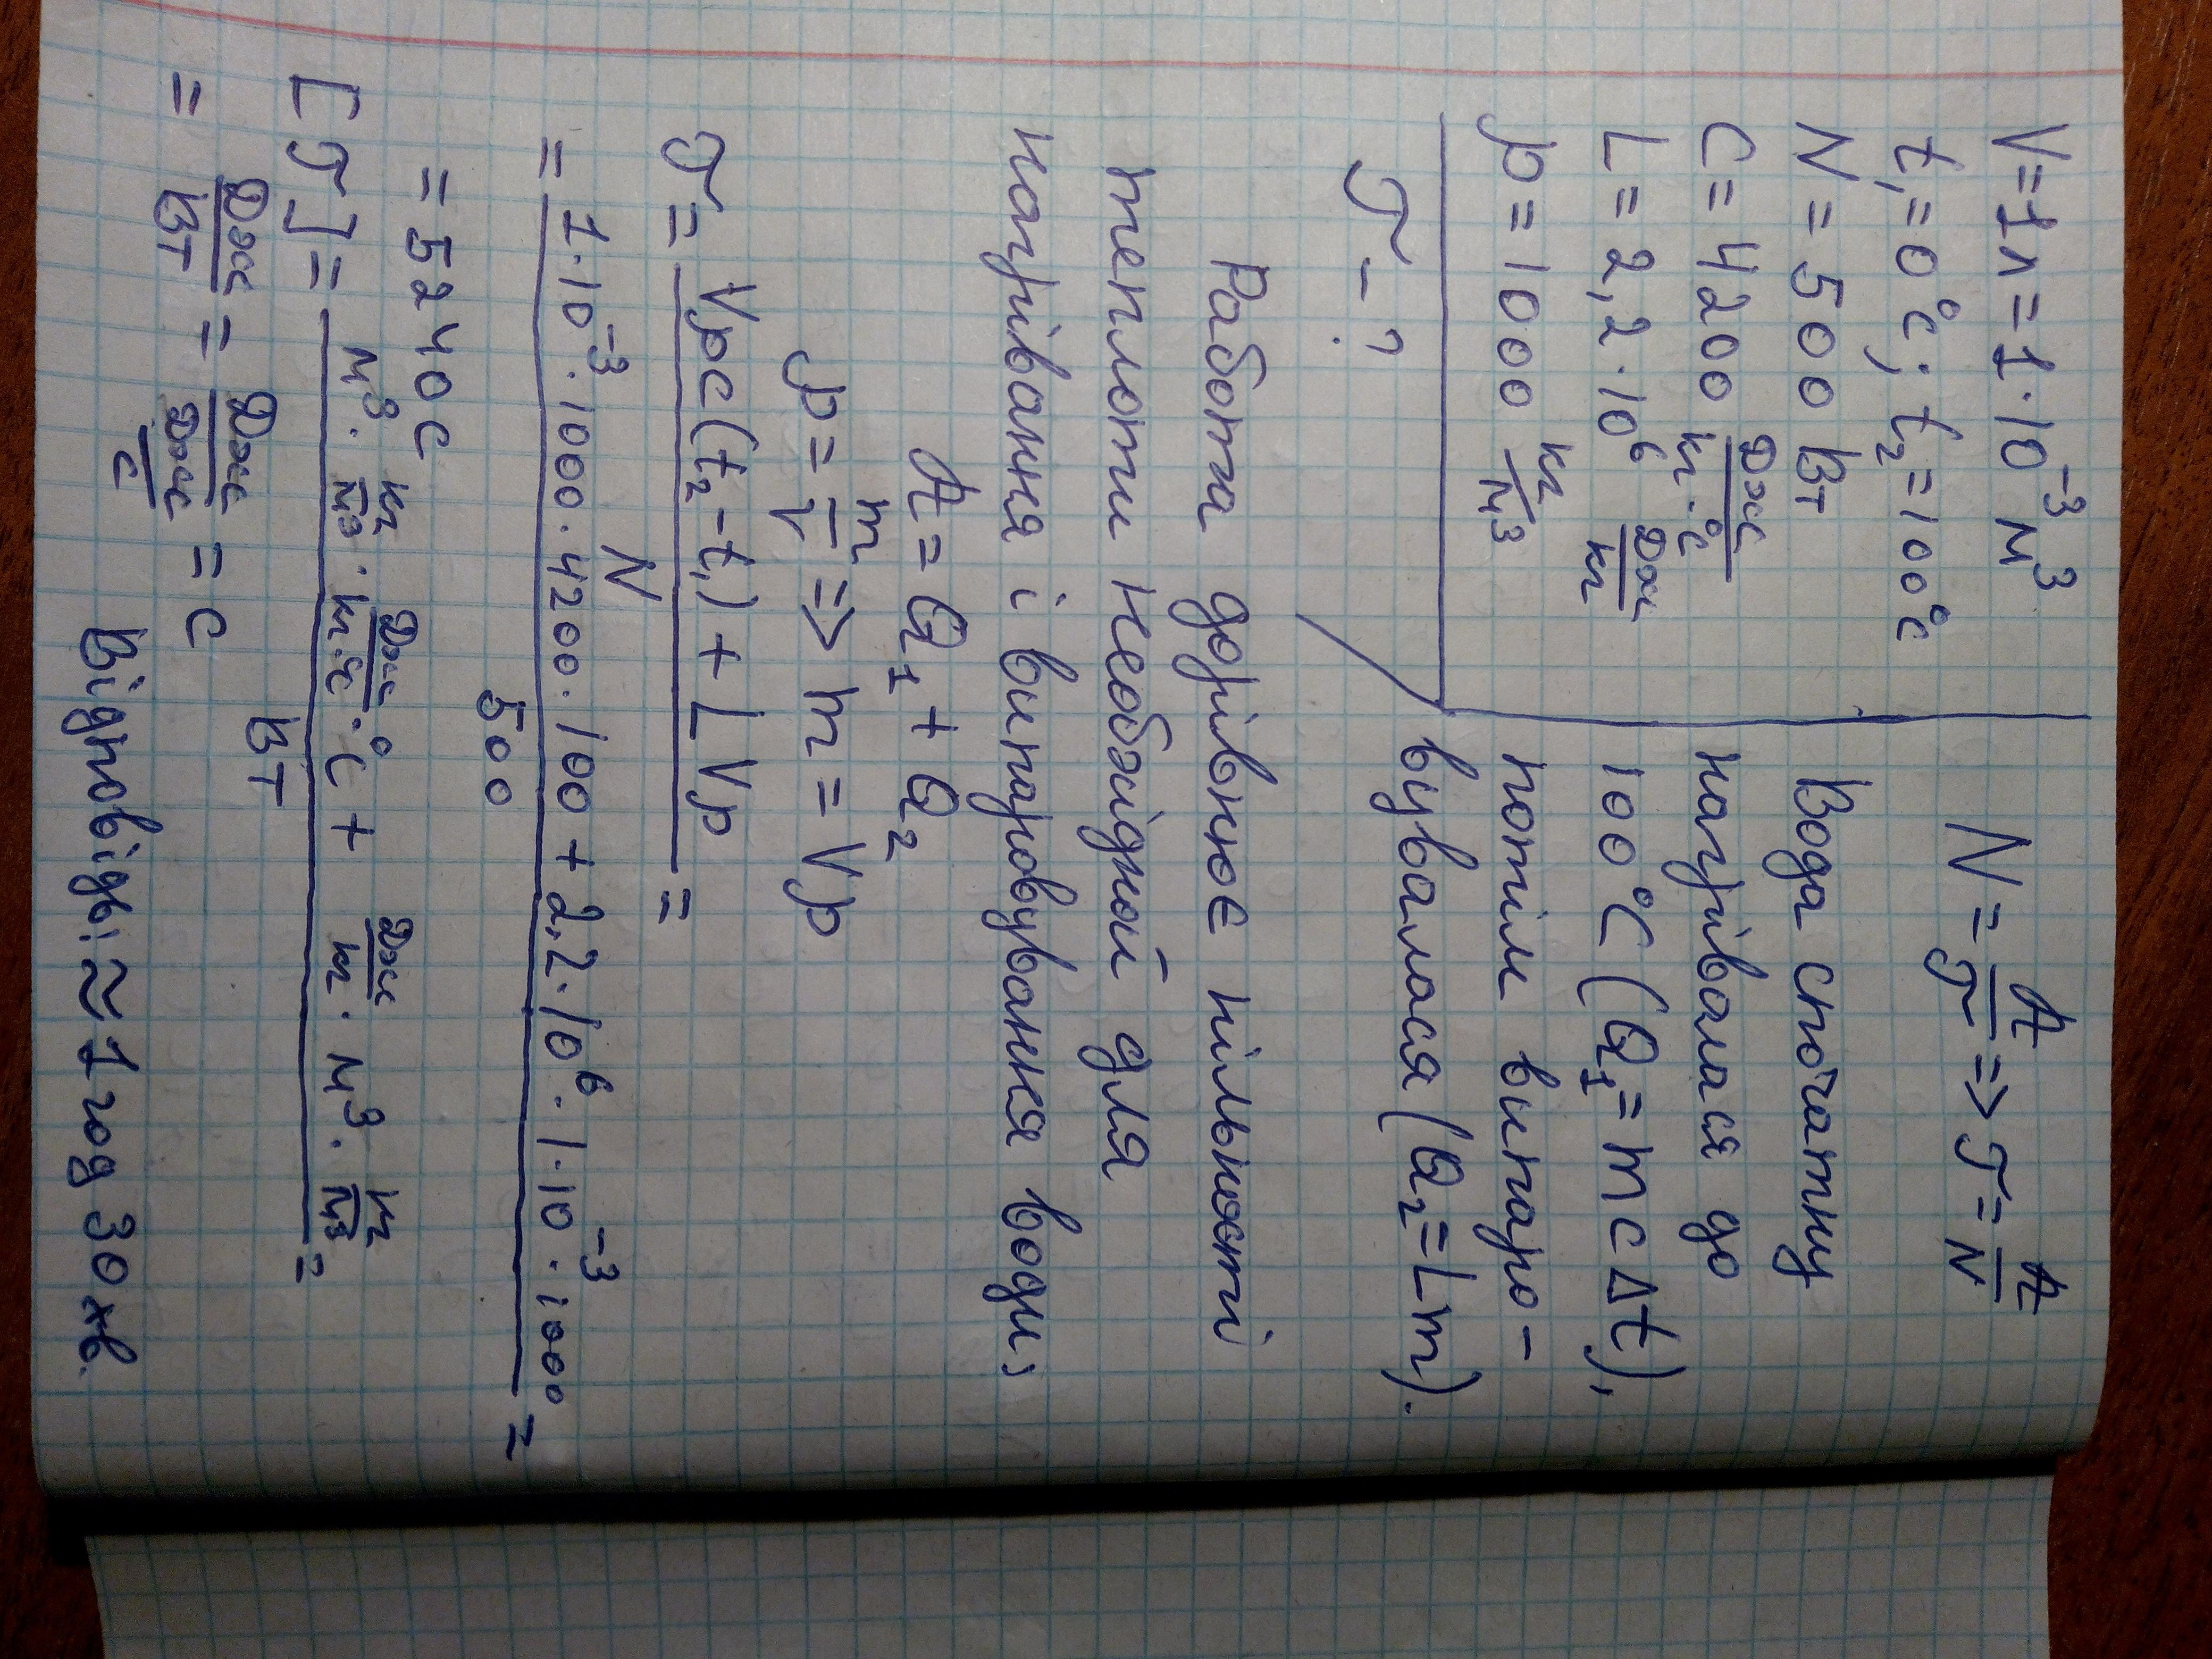 V = 1л = 1·10⁻³ м³
t₁ = 0°C; t₂ = 100°C
N = 500 Вт
C = 4200 Дж/кг·°C
L = 2,2·10⁶ Дж/кг
ρ = 1000 кг/м³
τ - ?
N = A/τ => τ = A/N
Вода спочатну
нагрівалася до
100°C (Q₁ = mcΔt),
потім випаро-
вувалася (Q₂ = Lm).
Работа дорівнює кількості
теплоти необхідної для
нагрівання і випаровування води;
A = Q₁ + Q₂
ρ = m/V => m = Vρ
τ = (Vρc(t₂ - t₁) + LVρ)/N =
= (1·10⁻³·1000·4200·100 + 2,2·10⁶·1·10⁻³·1000)/500 =
= 5240 c
[τ] = (м³·кг/м³·Дж/кг·°C·°C + Дж/кг·м³·кг/м³)/Вт =
= Дж/Вт = Дж/(Дж/с) = c
Відповідь: ≈ 1 год 30 хв.